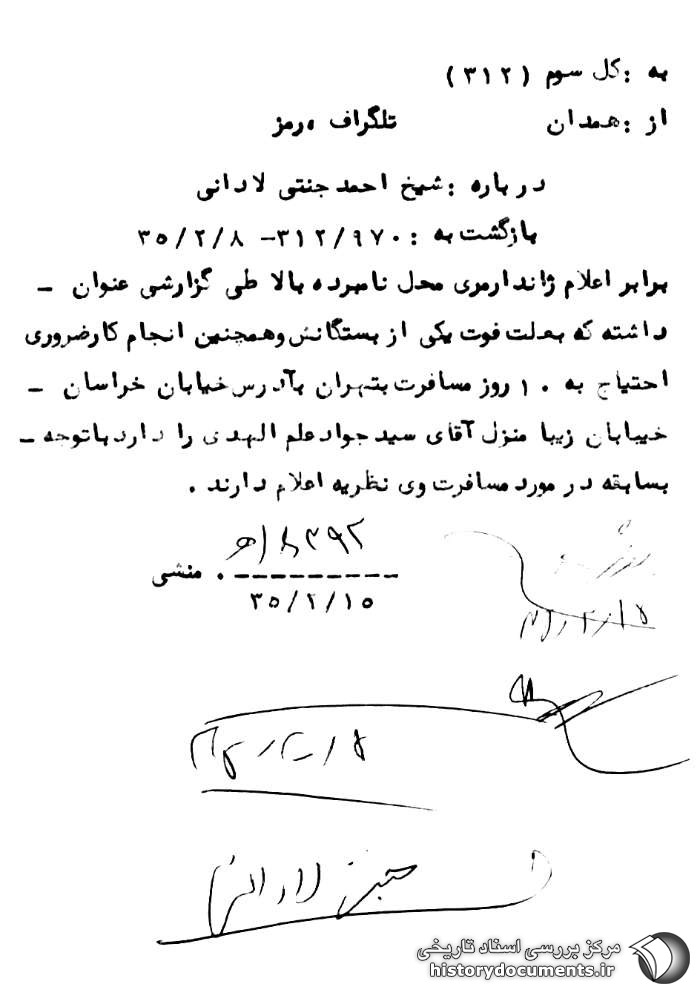 به :کل سوم (۳۱۲)
از :همدان تلگراف ،رمز
درباره :شیخ احمد جنتی لادانی
بازگشت به : ۳۱۲/۹۷۰– ۳۵/۲/۸
برابر اعلام ژاندارمری محل نامبرده بالا طی گزارشی عنوان –
داشته که بعلت فوت یکی از بستگانش وهمچنین انجام کارضروری
احتیاج به ۱۰ روز مسافرت بتهران بآدرس خیابان خراسان –
خیبابان زیبا منزل آقای سید جواد علم الهدی را دارد باتوجه –
بسابقه در مورد مسافرت وی نظریه اعلام دارند .
---------- . منشی
۳۵/۲/۱۵
مرکز بررسی اسناد تاریخی
historydocuments.ir